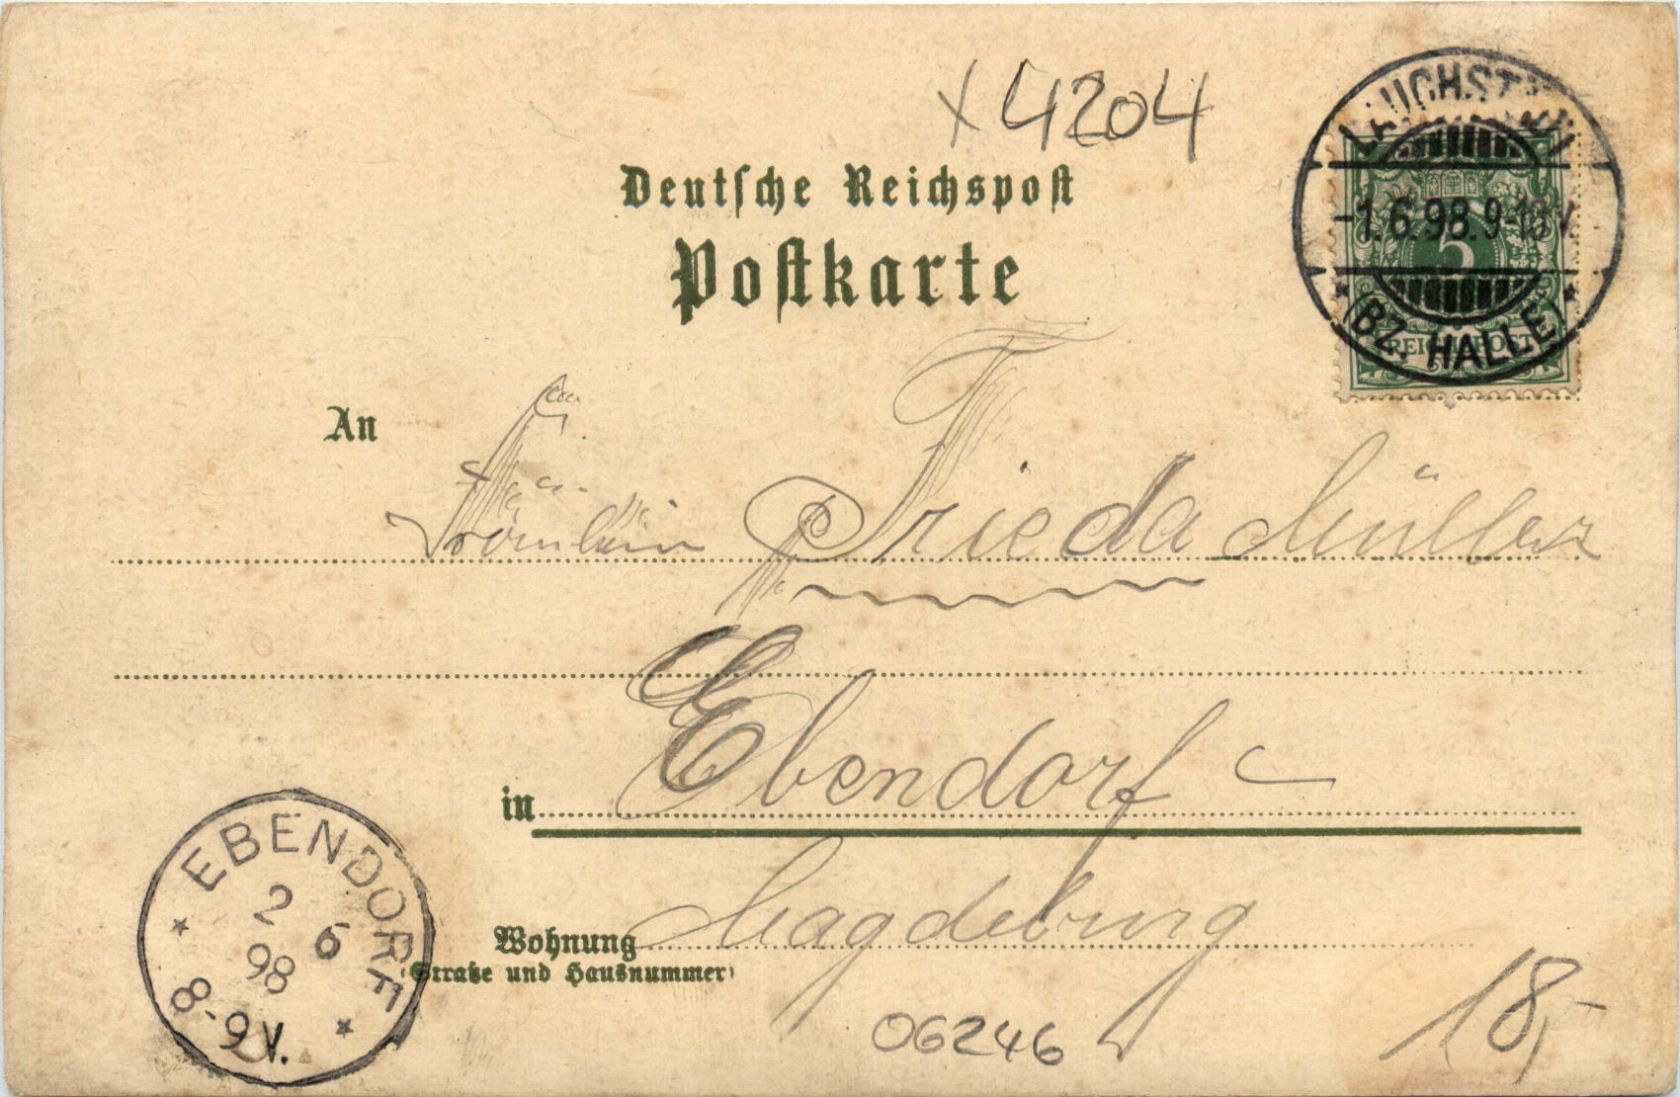 x 4204
LAUCHSTÄDT
-1.6.98.9-10V.
(BZ. HALLE)
5
REICHSPOST
Deutsche Reichspost
Postkarte
An
Fräulein Frieda Müller
in Ebendorf
Wohnung Magdeburg
(Straße und Hausnummer)
EBENDORF
2 6
98
8-9 V.
06246
18,-